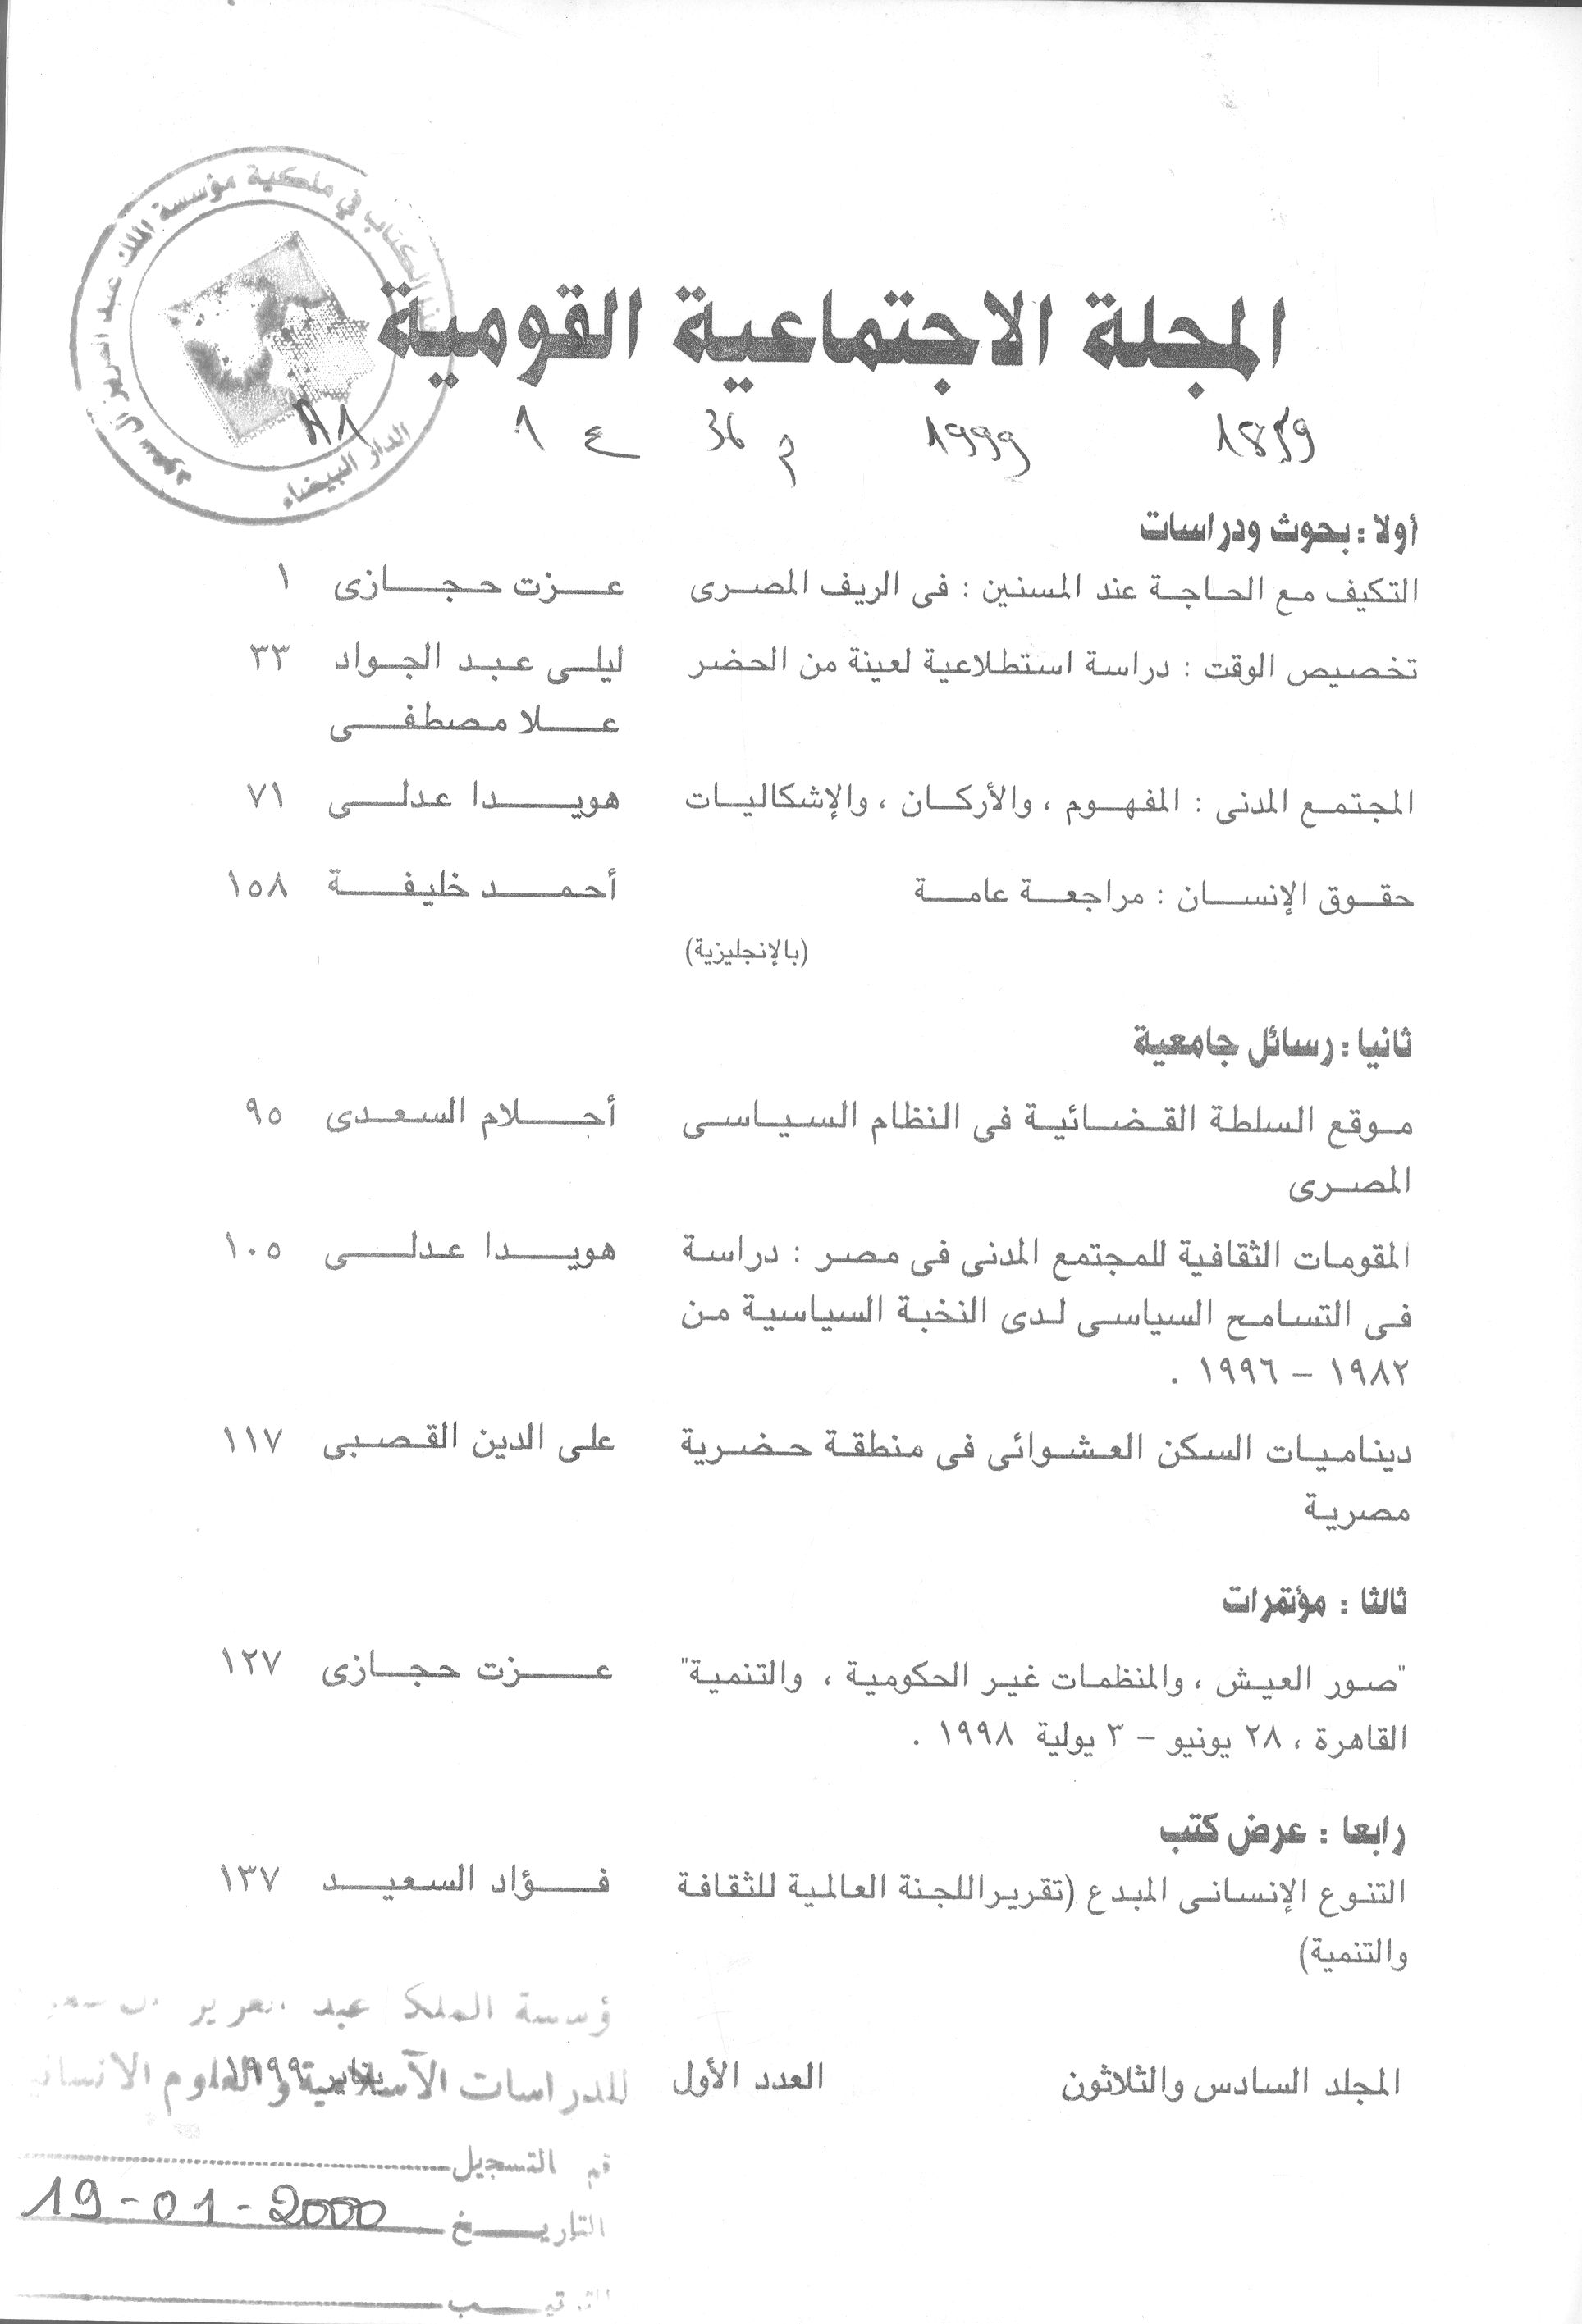 هذا الكتاب في ملكية مؤسسة الملك عبد العزيز آل سعود
الدار البيضاء
المجلة الاجتماعية القومية
1999 م 36 ع 1
أولا : بحوث ودراسات
التكيف مع الحاجة عند المسنين : فى الريف المصرى عزت حجازى ١
تخصيص الوقت : دراسة استطلاعية لعينة من الحضر ليلى عبد الجواد ٣٣
علا مصطفى
المجتمع المدنى : المفهوم ، والأركان ، والإشكاليات هويدا عدلى ٧١
حقوق الإنسان : مراجعة عامة أحمد خليفة ١٥٨
(بالإنجليزية)
ثانيا : رسائل جامعية
موقع السلطة القضائية فى النظام السياسى أحلام السعدى ٩٥
المصرى
المقومات الثقافية للمجتمع المدنى فى مصر : دراسة هويدا عدلى ١٠٥
فى التسامح السياسى لدى النخبة السياسية من
١٩٨٢ – ١٩٩٦ .
ديناميات السكن العشوائى فى منطقة حضرية على الدين القصبى ١١٧
مصرية
ثالثا : مؤتمرات
"صور العيش ، والمنظمات غير الحكومية ، والتنمية" عزت حجازى ١٢٧
القاهرة ، ٢٨ يونيو – ٣ يولية ١٩٩٨ .
رابعا : عرض كتب
التنوع الإنسانى المبدع (تقريراللجنة العالمية للثقافة فؤاد السعيد ١٣٧
والتنمية)
المجلد السادس والثلاثون العدد الأول يناير ١٩٩٩
ؤسسة الملك عبد العزيز آل سعو
للدراسات الآسلامية والعلوم الانسان
قم التسجيل
التاريخ 19-01-2000
الترتيب